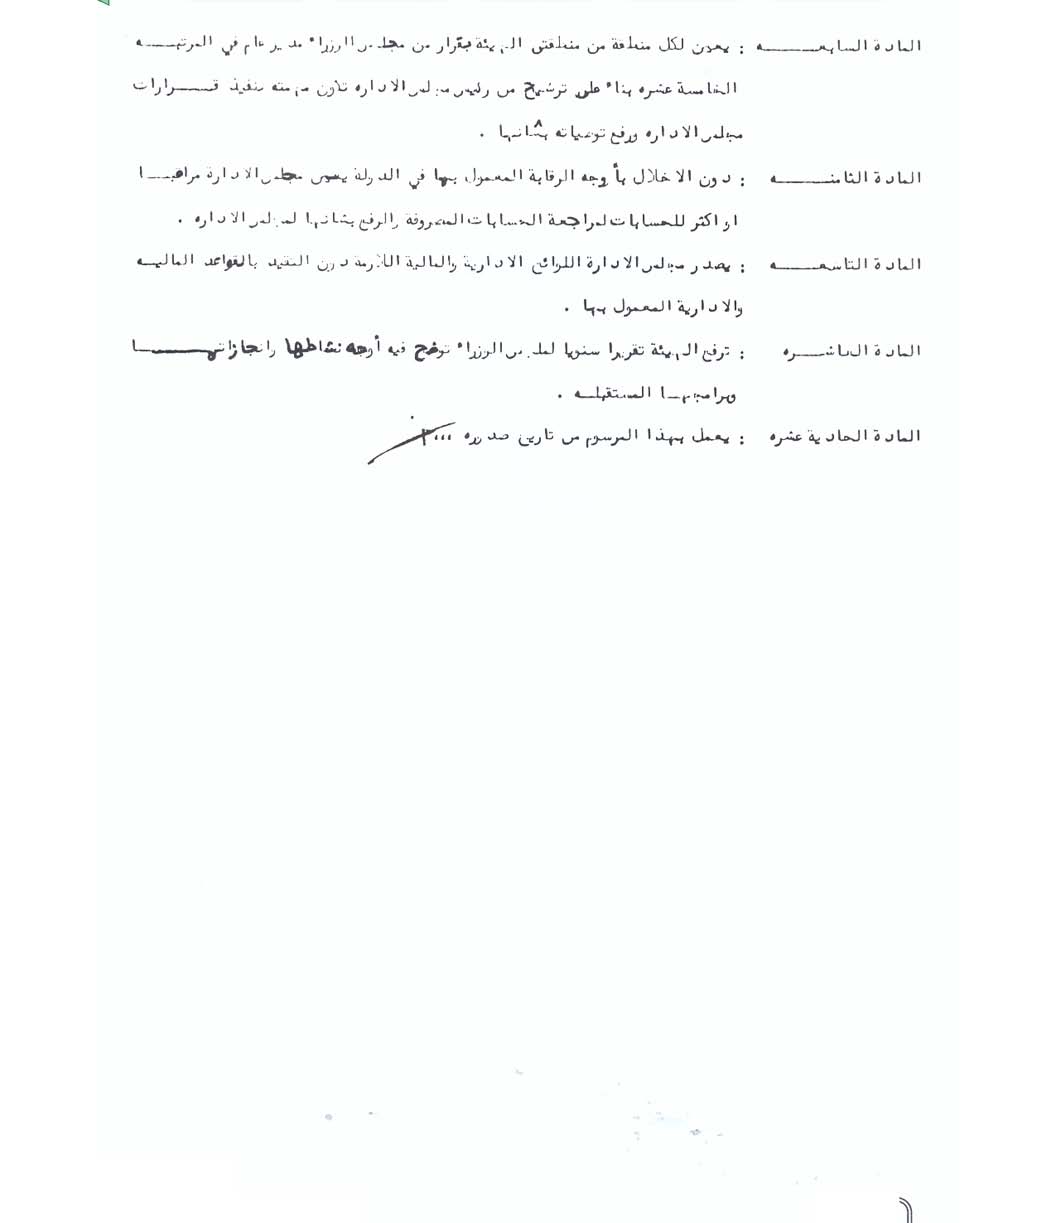 المادة السابعـــــه : يعين لكل منطقة من منطقتى الهيئة بقرار من مجلس الوزراء مدير عام في المرتبــــه
الخامسة عشره بناء على ترشيح من رئيس مجلس الاداره تكون مهمته تنفيذ قــــرارات
مجلس الاداره ورفع توصياته بشأنها .
المادة الثامنـــــه : دون الاخلال بأوجه الرقابة المعمول بها في الدولة يسمى مجلس الادارة مراقبـــا
او اكثر للحسابات لمراجعة الحسابات المصروفة والرفع بشانها لمجلس الاداره .
المادة التاسعـــــه : يصدر مجلس الادارة اللوائح الادارية والمالية اللازمة دون التقيد بالقواعد الماليــه
والادارية المعمول بها .
المادة العاشــــره : ترفع الهيئة تقريرا سنويا لمجلس الوزراء توضح فيه أوجه نشاطها وانجازاتهـــــا
وبرامجهــا المستقبلــه .
المادة الحادية عشره : يعمل بهذا المرسوم من تاريخ صدوره ،،،